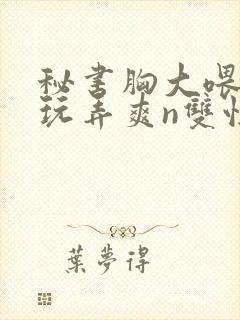 秘书胸大喂
玩弄爽n雙性
葉夢得